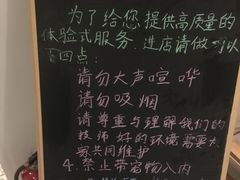 为了给您提供高质量的
体验式服务.进店请做到以
下四点:
请勿大声喧哗
请勿吸烟
请尊重与理解我们的
技师 好的环境需要大
家共同维护
4.禁止带宠物入内